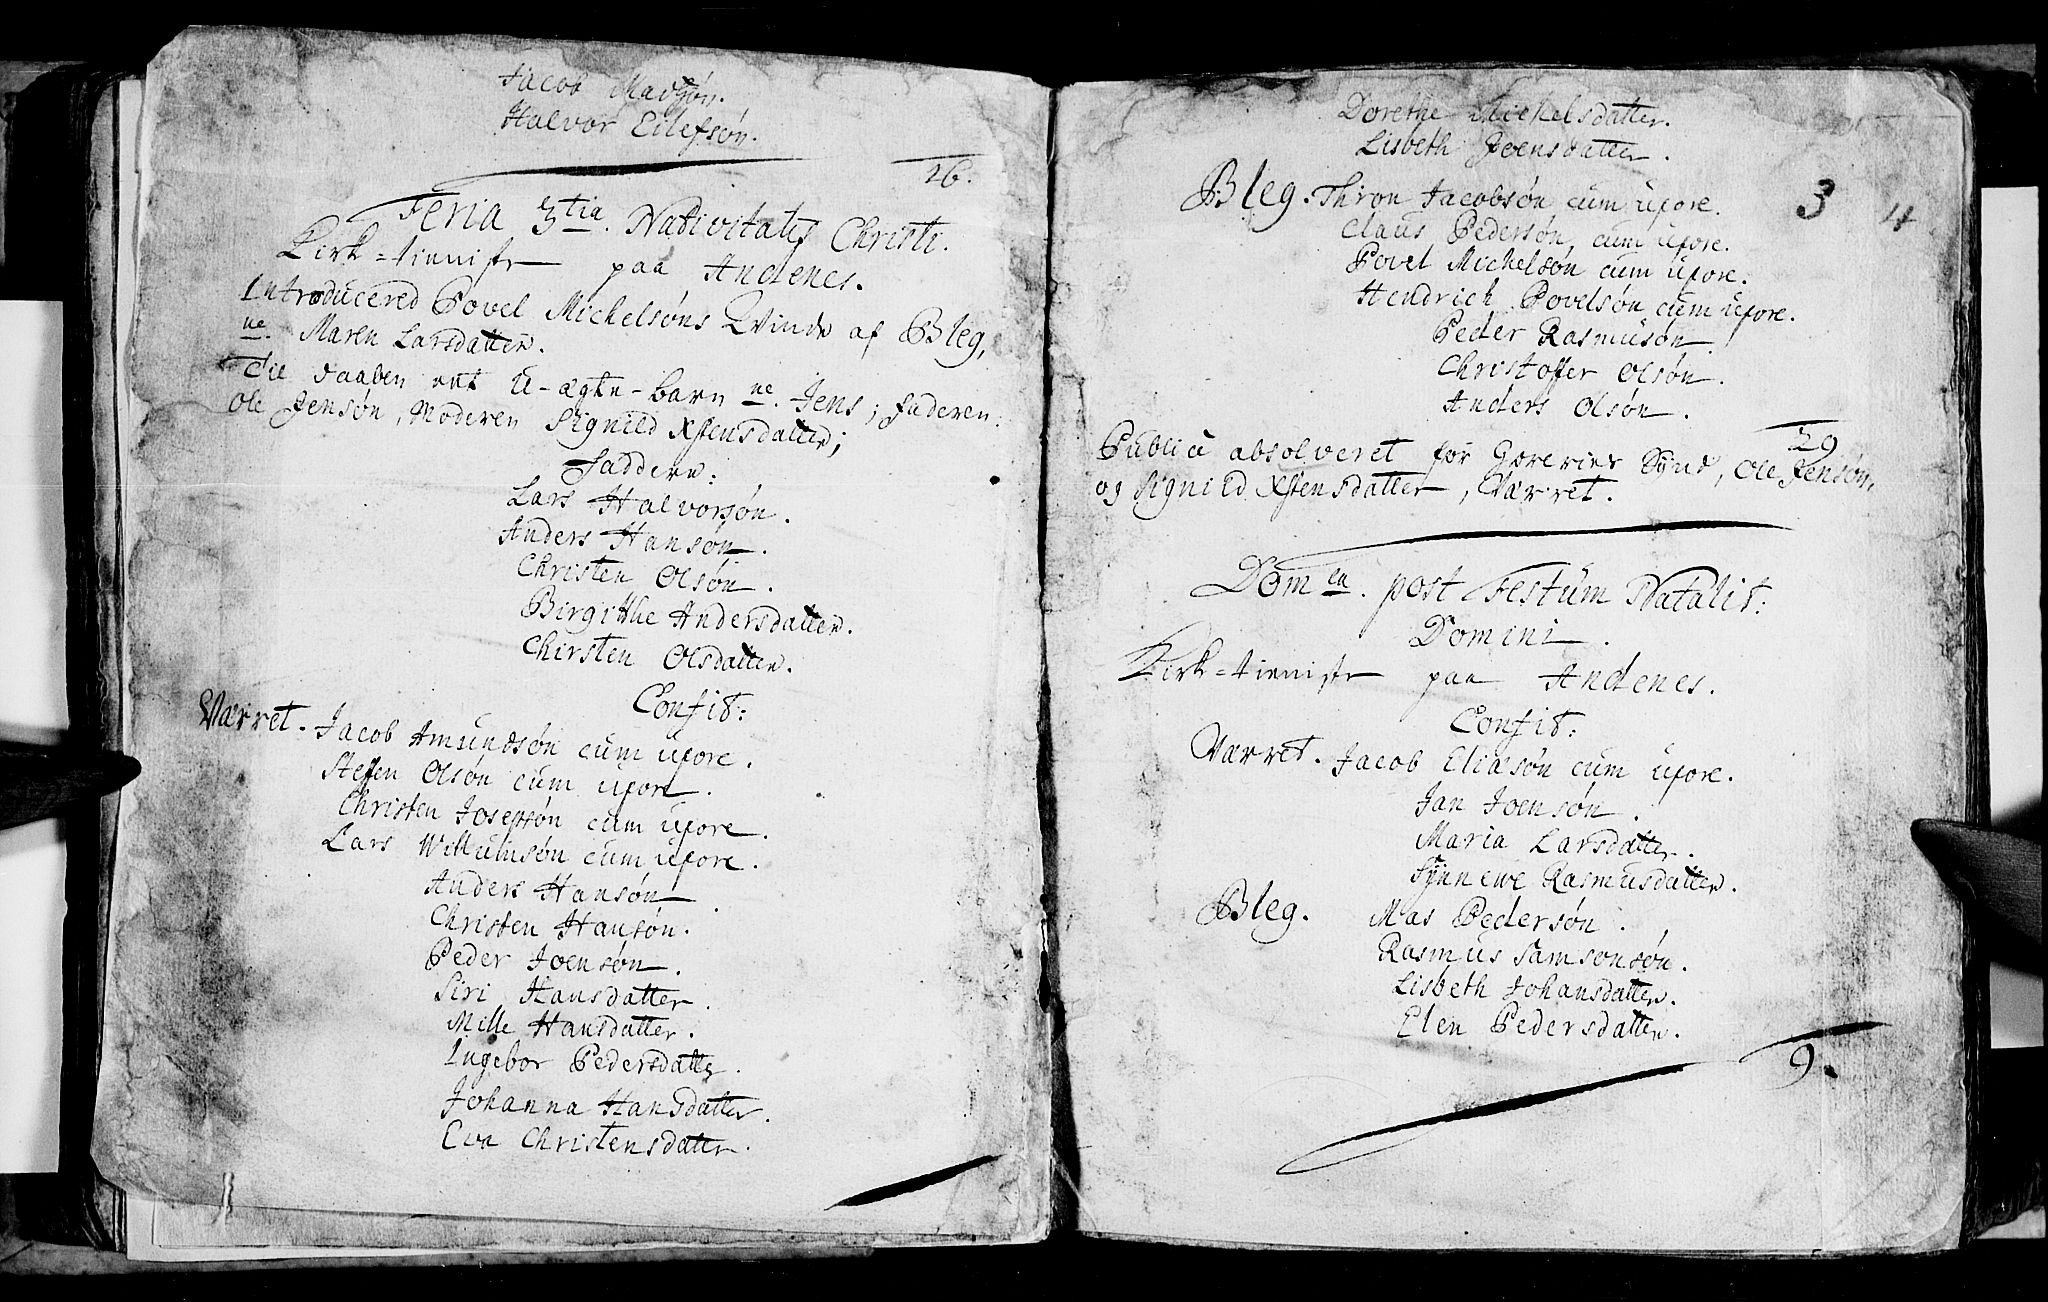 Jacob Madsøn.
Halvor Eilefsøn.
26.
Feria 3tia. Nativitatis Christi.
Kirk-tieniste paa Andenes.
Introducered Povel Michelsøns Qvinde af Bleg,
ne. Maren Larsdatter.
Til daaben ett U-ægte-barn ne. Jens; Faderen:
Ole Jensøn, Moderen Signild Xstensdatter;
Faddere:
Lars Halvorsøn.
Anders Hansøn.
Christen Olsøn.
Birgithe Andersdatter.
Chirsten Olsdatter.
Confit:
Værret. Jacob Amundsøn cum uxore.
Steffen Olsøn cum uxore.
Christen Josepsøn cum uxore.
Lars Willumsøn cum uxore.
Anders Hansøn.
Christen Hansøn.
Peder Joensøn.
Siri Hansdatter.
Mille Hansdatter.
Ingebor Pedersdatter.
Johanna Hansdatter.
Eva Christensdatter.
Dorethe Michelsdatter.
Lisbeth Joensdatter.
Bleg. Thron Jacobsøn cum uxore.
3
4
Claus Pedersøn, cum uxore.
Povel Michelsøn cum uxore.
Hendrich Povelsøn cum uxore.
Peder Rasmusøn.
Christoffer Olsøn.
Anders Olsøn.
29
Publicè absolveret for Horeries Synd, Ole Jensøn,
og Signild Xstensdatter, Værret.
Domca. post Festum Natalit:
Domini.
Kirk-tieniste paa Andenes.
Confit:
Værret. Jacob Eliæsøn cum uxore.
Jan Joensøn.
Maria Larsdatter.
Synnewe Rasmusdatter.
Bleg. Mas Pedersøn.
Rasmus Samsonsøn.
Lisbeth Johansdatter.
Elen Pedersdatter.
9.